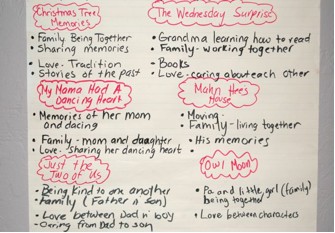 Christmas Tree Memories
• Family Being Together
• Sharing memories
Love - Tradition
• Stories of the past
The Wednesday Surprise
• Grandma learning how to read
• Family - working together
- Books
• Love - caring about each other
My Mama Had A Dancing Heart
• Memories of her mom
and dacing
• Family - mom and daughter
• Love - Sharing her dancing heart
House
• Moving -
Family - living together
• His memories
•
Just the Two of Us
• Being kind to one another
• Family (Father n' son)
• Love between Dad n' boy
- Caring from Dad to son
Owl Moon
• Pa and little girl (family)
being together
• Love between characters